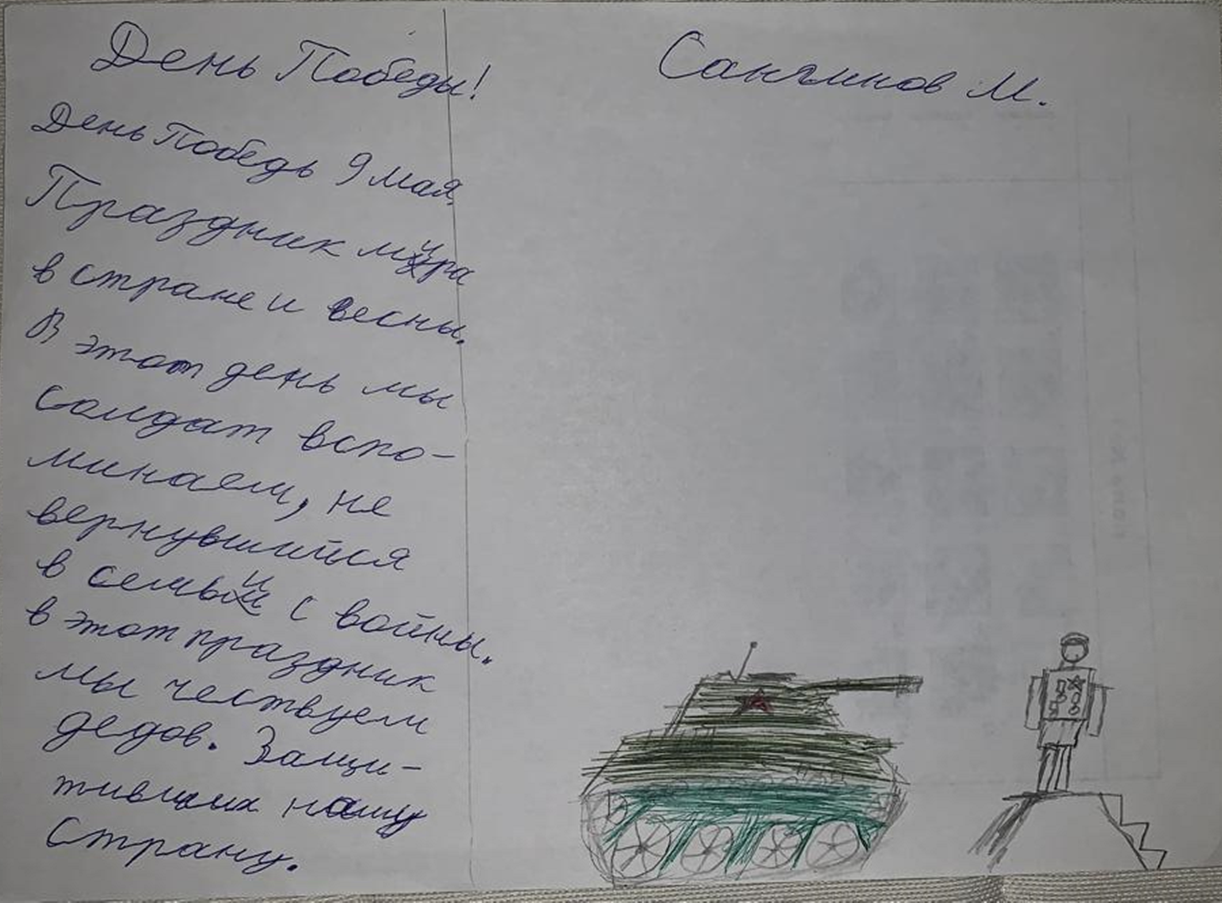 День Победы!
Сангинов М.
День Победь 9 мая,
Праздник мира
в стране и весны.
В этот день мы
солдат вспо-
минаем, не
вернувшийся
в семьи с войны.
в этот праздник
мы чествуем
дедов. Защи-
тивших нашу
Страну.